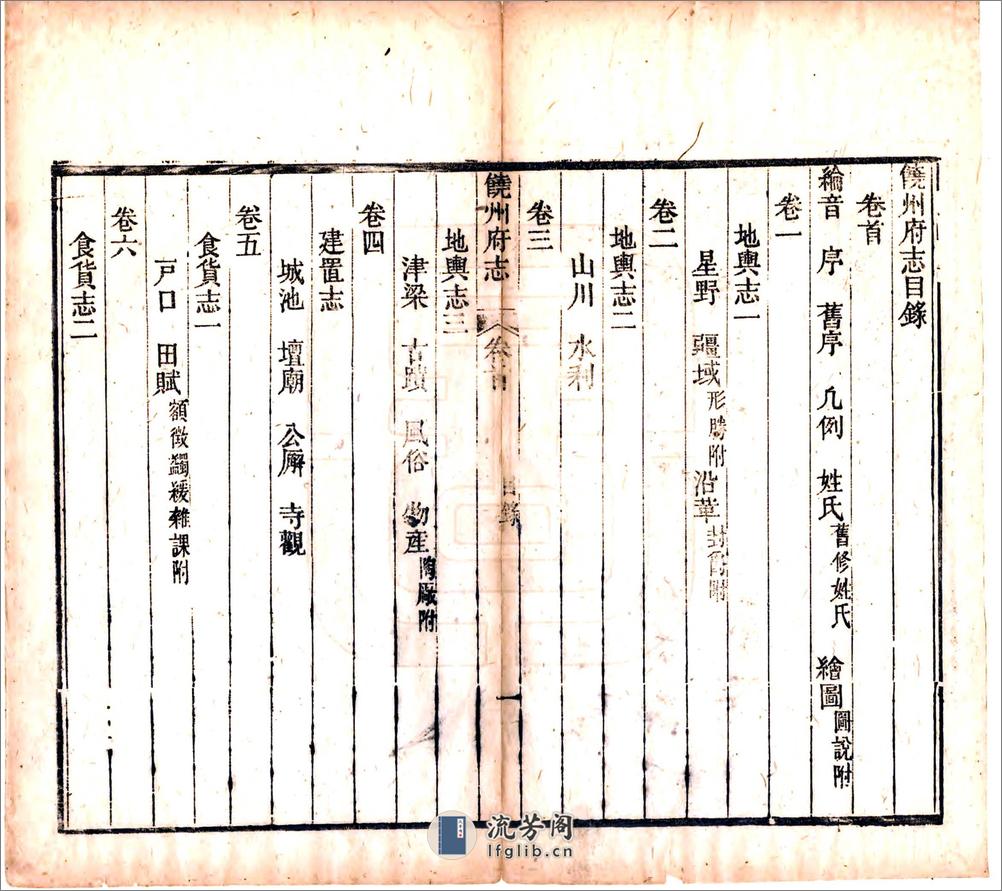 饒州府志目錄
卷首
綸音　序　舊序　凡例　姓氏舊修姓氏　繪圖圖說附
卷一
地輿志一
星野　疆域形勝附　沿革封爵附
卷二
地輿志二
山川　水利
卷三
饒州府志　卷首　目錄　一
地輿志三
津梁　古蹟　風俗　物產陶廠附
卷四
建置志
城池　壇廟　公廨　寺觀
卷五
食貨志一
戶口　田賦額徵蠲緩雜課附
卷六
食貨志二
流芳阁
lfglib.cn